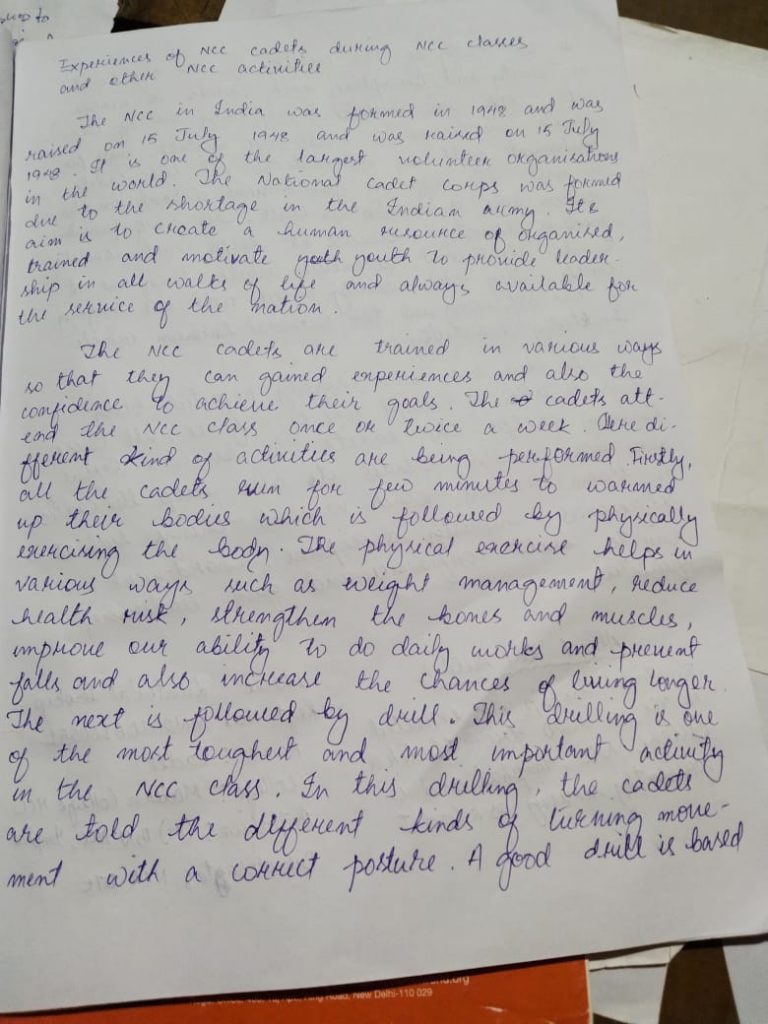 Experiences of NCC cadets during NCC classes
and other NCC activities
The NCC in India was formed in 1948 and was
raised on 15 July 1948 and was raised on 15 July
1948. It is one of the largest volunteer organisations
in the world. The National cadet corps was formed
due to the shortage in the Indian army. Its
aim is to create a human resource of organised,
trained and motivate youth to provide leader-
ship in all walks of life and always available for
the service of the nation.
The NCC cadets are trained in various ways
so that they can gained experiences and also the
confidence to achieve their goals. The cadets att-
end the NCC class once or twice a week. Here di-
fferent kind of activities are being performed. Firstly,
all the cadets run for few minutes to warmed
up their bodies which is followed by physically
exercising the body. The physical exercise helps in
various ways such as weight management, reduce
health risk, strengthen the bones and muscles,
improve our ability to do daily works and prevent
falls and also increase the chances of living longer.
The next is followed by drill. This drilling is one
of the most toughest and most important activity
in the NCC class. In this drilling, the cadets
are told the different kinds of turning move-
ment with a correct posture. A good drill is based
New Delhi-110 029